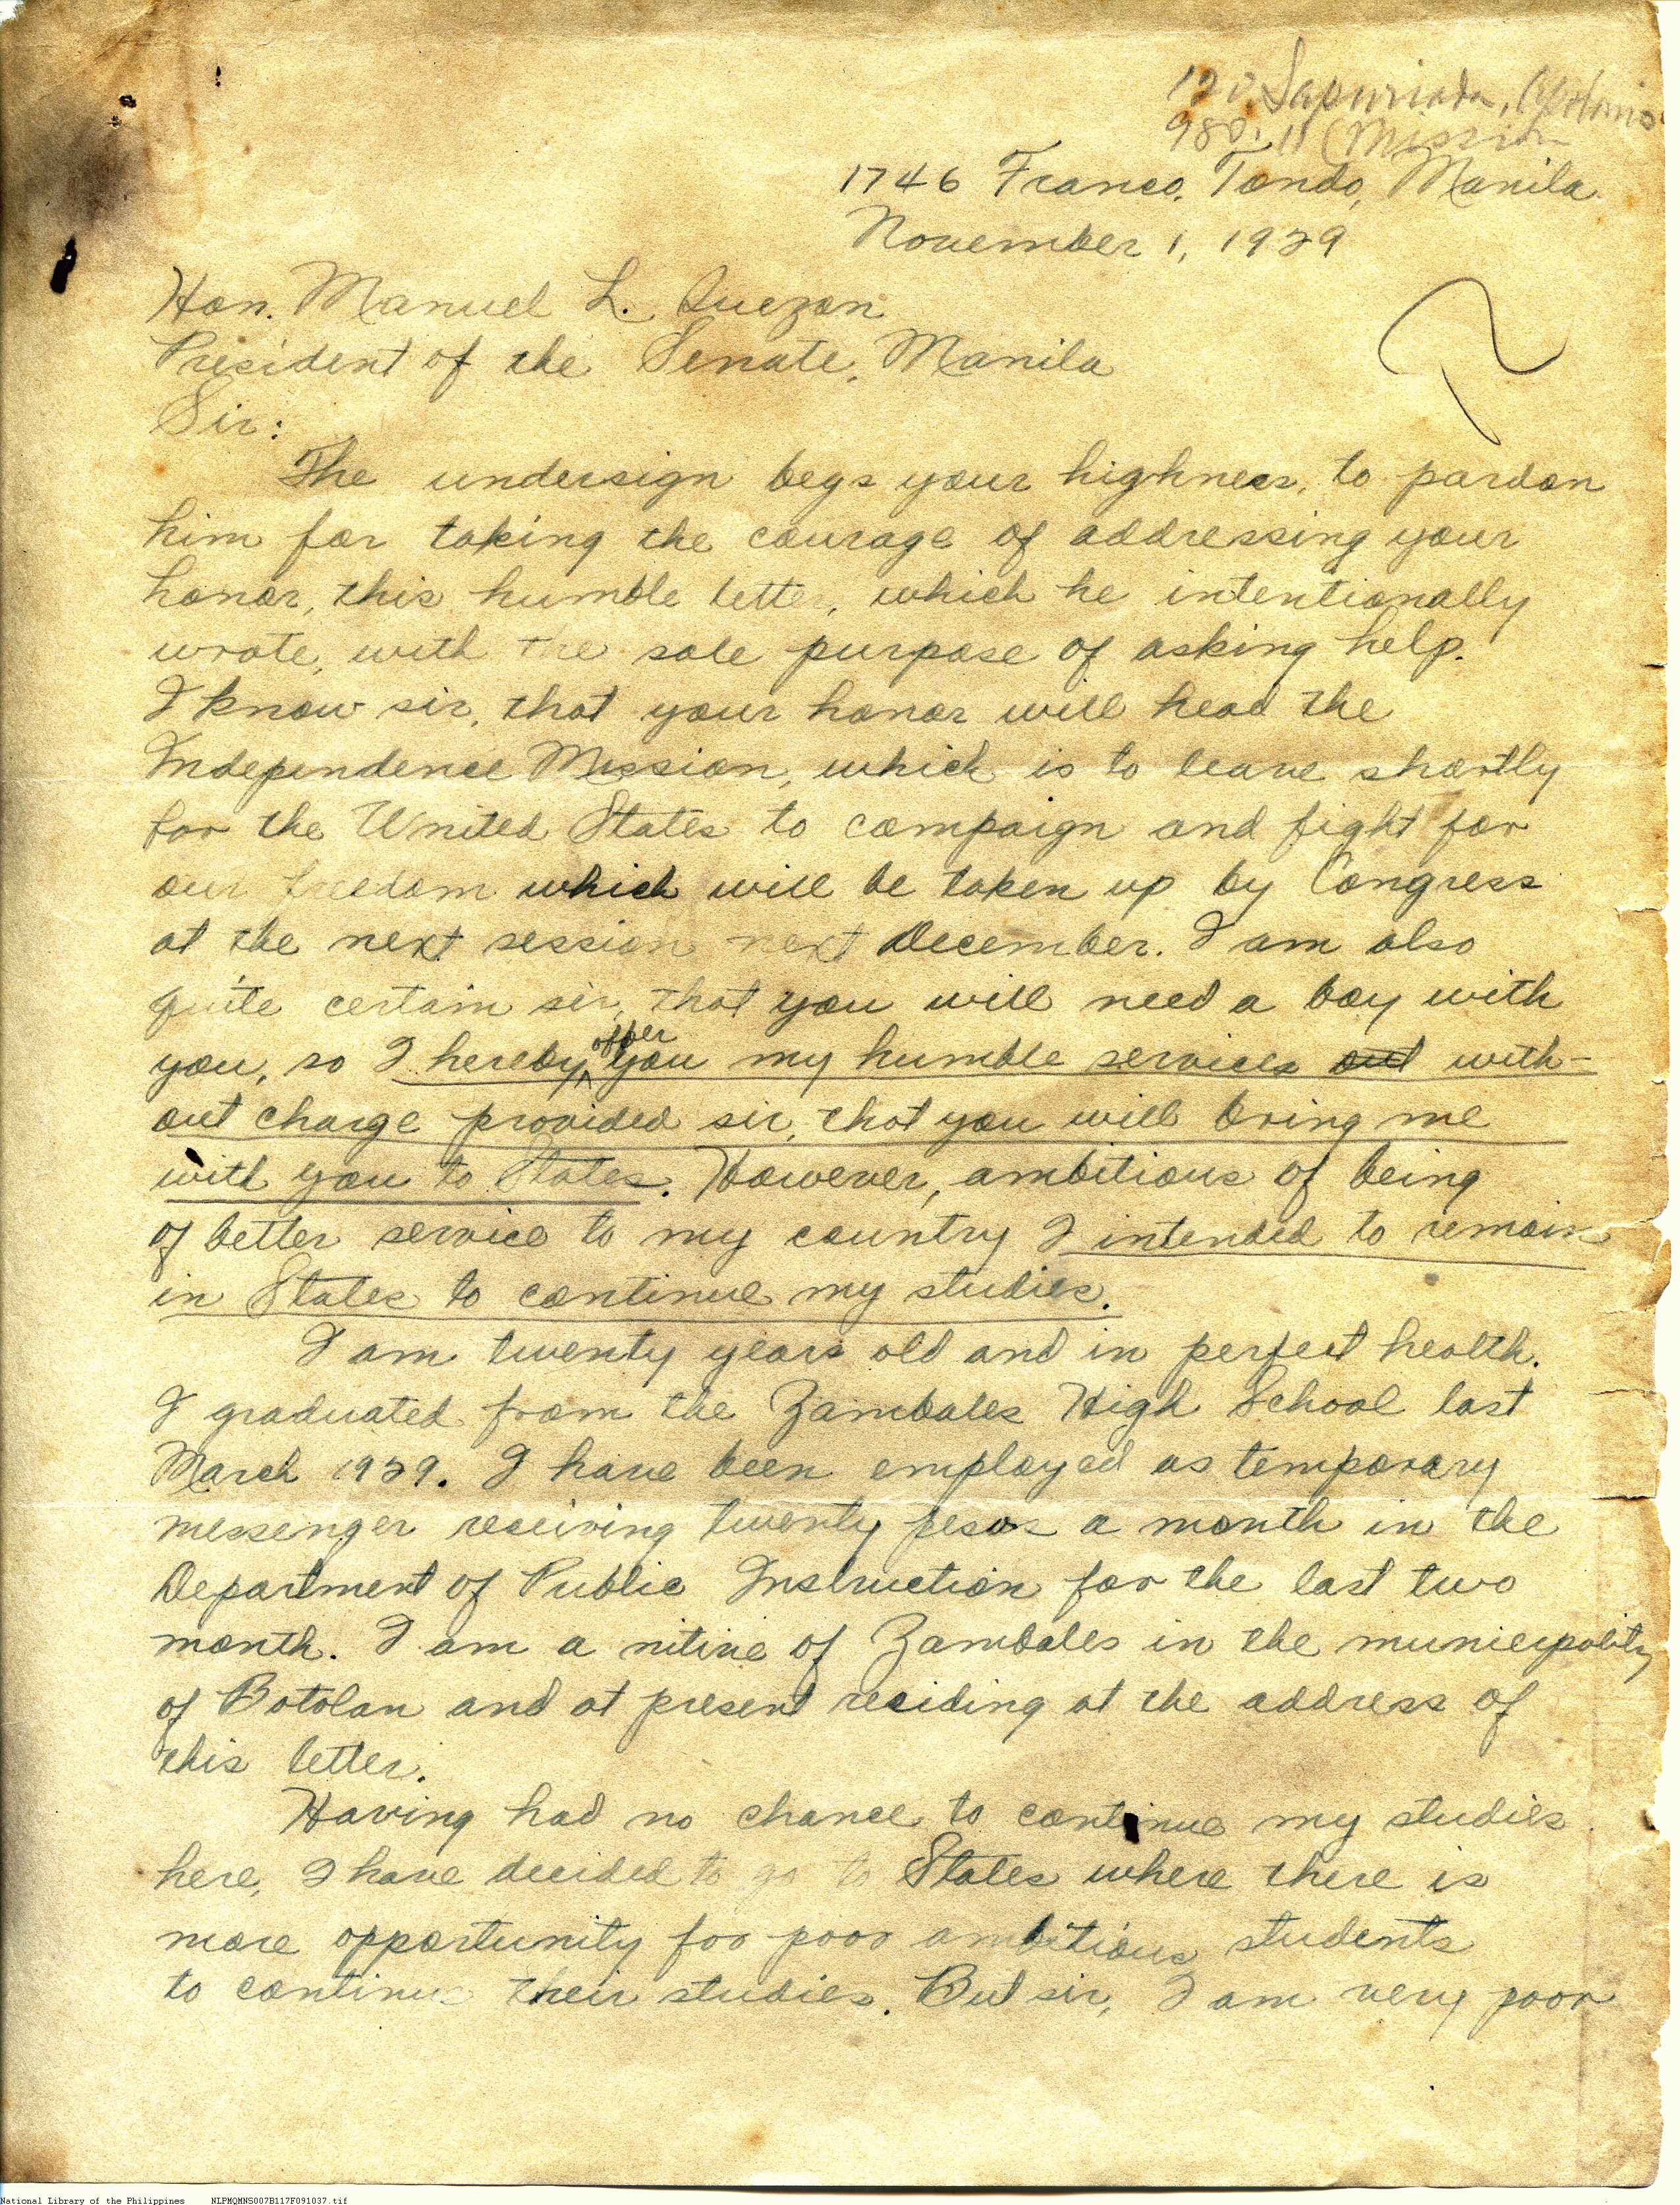 980.11 (Mission
1746 Franco, Tondo, Manila.
November 1, 1929
Hon. Manuel L. Quezon
President of the Senate, Manila
Sir:
The undersign begs your highness, to pardon
him for taking the courage of addressing your
honor, this humble letter, which he intentionally
wrote, with the sole purpose of asking help.
I know sir, that your honor will head the
Independence Mission, which is to leave shortly
for the United States to campaign and fight for
our freedom which will be taken up by Congress
at the next session next December. I am also
quite certain sir, that you will need a boy with
you, so I hereby offer you my humble services out with-
out charge provided sir, that you will bring me
with you to States. However, ambitious of being
of better service to my country I intended to remain
in States to continue my studies.
I am twenty years old and in perfect health.
I graduated from the Zambales High School last
March 1929. I have been employed as temporary
messenger receiving twenty pesos a month in the
Department of Public Instruction for the last two
month. I am a nitive of Zambales in the municipality
of Botolan and at present residing at the address of
this letter.
Having had no chance to continue my studies
here, I have decided to go to States where there is
more opportunity for poor ambitious students
to continue their studies. But sir, I am very poor
National Library of the Philippines NLPMQMNS007B117F091037.tif